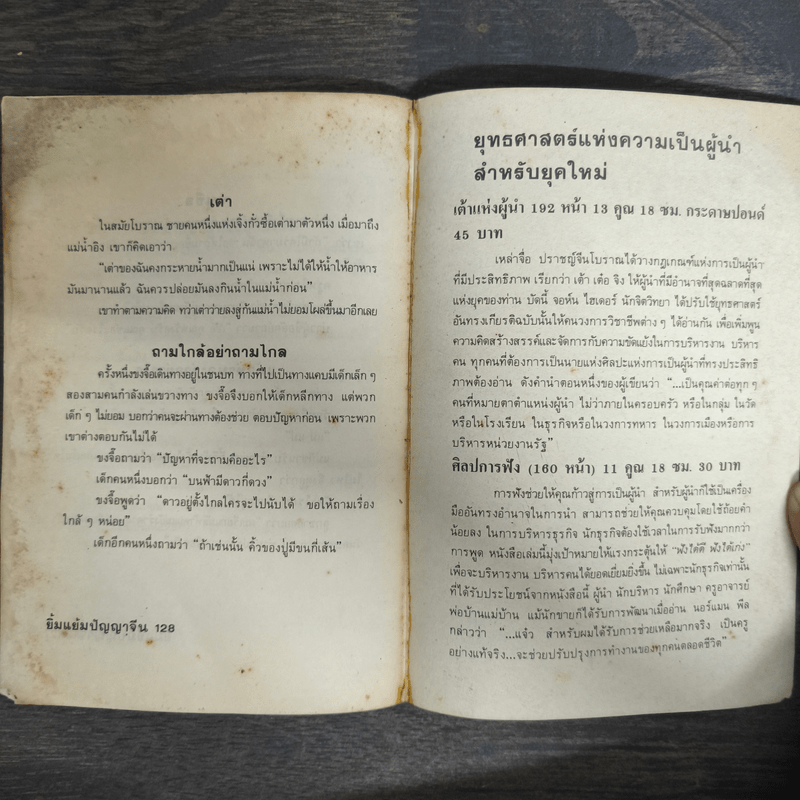 เต่า
ในสมัยโบราณ ชายคนหนึ่งแห่งเจิ้งกั๋วซื้อเต่ามาตัวหนึ่ง เมื่อมาถึง
แม่น้ำอิง เขาก็คิดเอาว่า
“เต่าของฉันคงกระหายน้ำมากเป็นแน่ เพราะไม่ได้ให้น้ำให้อาหาร
มันมานานแล้ว ฉันควรปล่อยมันลงกินน้ำในแม่น้ำก่อน”
เขาทำตามความคิด ทว่าเต่าว่ายลงสู่ก้นแม่น้ำไม่ยอมโผล่ขึ้นมาอีกเลย
ถามใกล้อย่าถามไกล
ครั้งหนึ่งขงจื้อเดินทางอยู่ในชนบท ทางที่ไปเป็นทางแคบมีเด็กเล็ก ๆ
สองสามคนกำลังเล่นขวางทาง ขงจื้อจึงบอกให้เด็กหลีกทาง แต่พวก
เด็ก ๆ ไม่ยอม บอกว่าคนจะผ่านทางต้องช่วย ตอบปัญหาก่อน เพราะพวก
เขาต่างตอบกันไม่ได้
ขงจื้อถามว่า “ปัญหาที่จะถามคืออะไร”
เด็กคนหนึ่งบอกว่า “บนฟ้ามีดาวกี่ดวง”
ขงจื้อพูดว่า “ดาวอยู่ตั้งไกลใครจะไปนับได้ ขอให้ถามเรื่อง
ใกล้ ๆ หน่อย”
เด็กอีกคนหนึ่งถามว่า “ถ้าเช่นนั้น คิ้วของปู่มีขนกี่เส้น”
ยิ้มแย้มปัญญาจีน 128
ยุทธศาสตร์แห่งความเป็นผู้นำ
สำหรับยุคใหม่
เต้าแห่งผู้นำ 192 หน้า 13 คูณ 18 ซม. กระดาษปอนด์
45 บาท
เหล่าจื่อ ปราชญ์จีนโบราณได้วางกฎเกณฑ์แห่งการเป็นผู้นำ
ที่มีประสิทธิภาพ เรียกว่า เต้า เต๋อ จิง ให้ผู้นำที่มีอำนาจที่สุดฉลาดที่สุด
แห่งยุคของท่าน บัดนี้ จอห์น ไฮเดอร์ นักจิตวิทยา ได้ปรับใช้ยุทธศาสตร์
อันทรงเกียรติฉบับนั้นให้คนวงการวิชาชีพต่าง ๆ ได้อ่านกัน เพื่อเพิ่มพูน
ความคิดสร้างสรรค์และจัดการกับความขัดแย้งในการบริหารงาน บริหาร
คน ทุกคนที่ต้องการเป็นนายแห่งศิลปะแห่งการเป็นผู้นำที่ทรงประสิทธิ
ภาพต้องอ่าน ดังคำนำตอนหนึ่งของผู้เขียนว่า “...เป็นคุณค่าต่อทุก ๆ
คนที่หมายตาตำแหน่งผู้นำ ไม่ว่าภายในครอบครัว หรือในกลุ่ม ในวัด
หรือในโรงเรียน ในธุรกิจหรือในวงการทหาร ในวงการเมืองหรือการ
บริหารหน่วยงานรัฐ”
ศิลปการฟัง (160 หน้า) 11 คูณ 18 ซม. 30 บาท
การฟังช่วยให้คุณก้าวสู่การเป็นผู้นำ สำหรับผู้นำก็ใช้เป็นเครื่อง
มืออันทรงอำนาจในการนำ สามารถช่วยให้คุณควบคุมโดยใช้ถ้อยคำ
น้อยลง ในการบริหารธุรกิจ นักธุรกิจต้องใช้เวลาในการรับฟังมากกว่า
การพูด หนังสือเล่มนี้มุ่งเป้าหมายให้แรงกระตุ้นให้ “ฟังได้ดี ฟังได้เก่ง”
เพื่อจะบริหารงาน บริหารคนได้ยอดเยี่ยมยิ่งขึ้น ไม่เฉพาะนักธุรกิจเท่านั้น
ที่ได้รับประโยชน์จากหนังสือนี้ ผู้นำ นักบริหาร นักศึกษา ครูอาจารย์
พ่อบ้านแม่บ้าน แม้นักขายก็ได้รับการพัฒนาเมื่ออ่าน นอร์แมน พีล
กล่าวว่า “...แจ๋ว สำหรับผมได้รับการช่วยเหลือมากจริง เป็นครู
อย่างแท้จริง...จะช่วยปรับปรุงการทำงานของทุกคนตลอดชีวิต”